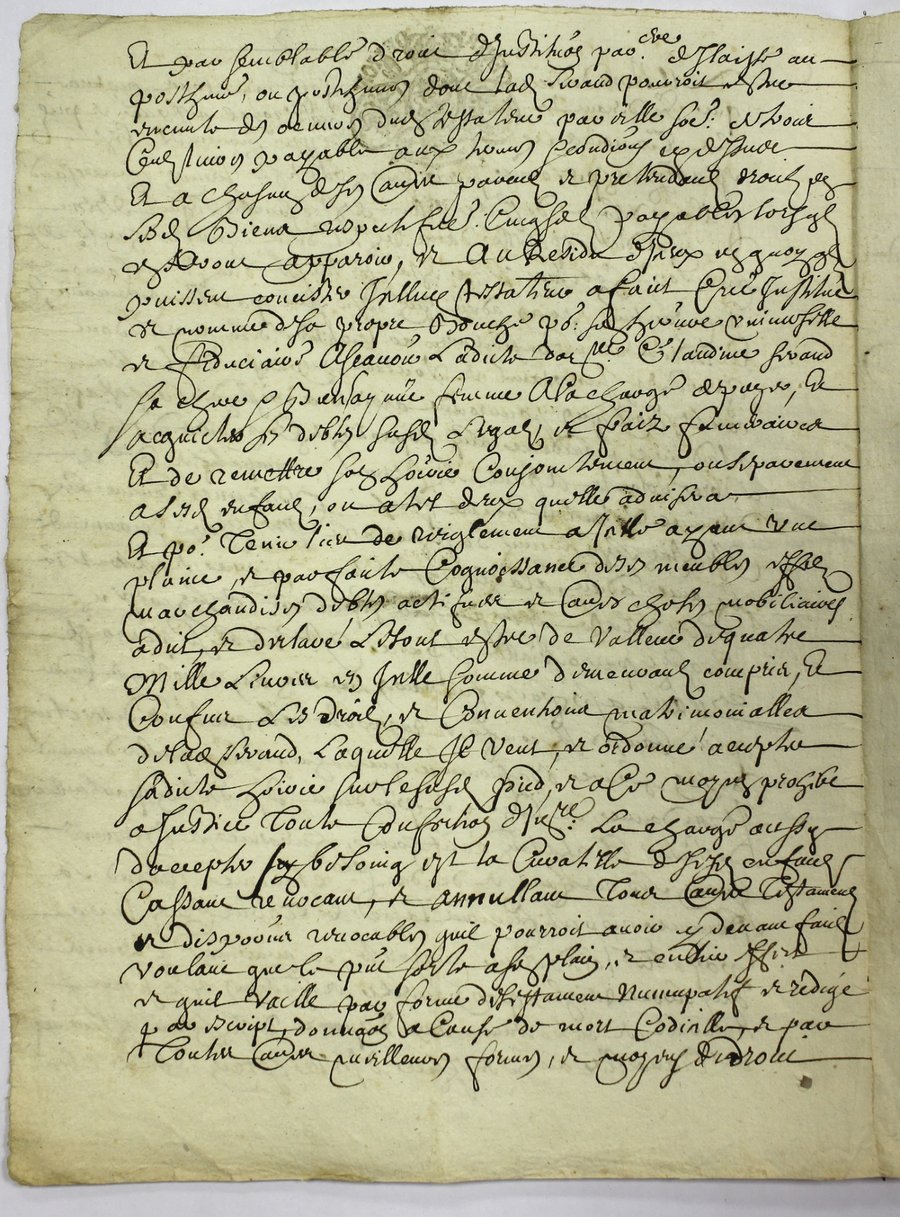 Et par semblable droit d'Institu͠on par.cre delaisse au
posthume, ou posthumes dont lad Sivand pourroit estre
enceinte des oeuvres dud testateur par elle so.t
payable aux
Et a chascun de ses autres parens et pretendans droit es
sesd Biens cinq sols payables lorsqu
apparoir, et Au Residu d'Iceux
puissent concister Icelluy testateur a fait cree Institue
et nomme de sa propre Bouche po.r sa heritiere universelle
et fiduciaire Ascavoir Ladicte dam.lle Claudine Sivand
sa chere & Bienaymée femme A la charge de payer, Et
acquicter ses debtes susd Legatz, et fraiz funeraires
Et de remettre son hoirie Conjointement, ou separement
a sesd enfans, ou a tel d'eux quelle advisera
Et po.r Tenir lieu de reiglement a Icelle ayant une
plaine, et parfaite Cognoissance de ses meubles effectz
marchandises, debtes actifves et autres choses mobiliaires
a dit, et declaré Le tout estre de Valleur de quatre
Mille Livres en Icelle somme demeurant comprins, Et
Confus Les droits, et Conventions matrimonialles
de lad Sivand, Laquelle Il veut, et ordonne accepter
sadicte hoirie sur le susd pied, et a Ce moyen prohibe
a Justice Toute Confection d'In.re La charge aussy
daccepter sy besoing est la Curatelle de sesd enfans
Cassant revocant, et annullant Tous autres Testamens
et dispo͠ons revocables quil pourroit avoir cy devant faict
voulant que le p͠nt sorte a son plain, et entier effect
et quil vaille par forme de testament Nuncupatif et redigé
par escript, dona͠on a Cause de mort Codicille, et par
Toutes autres meilleures formes, et moyens de droit